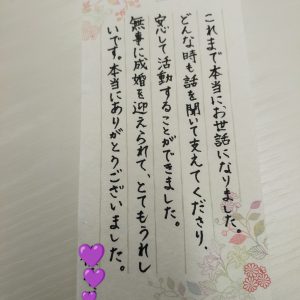 これまで本当にお世話になりました。
どんな時も話を聞いて支えてくださり、
安心して活動することができました。
無事に成婚を迎えられて、とてもうれし
いです。本当にありがとうございました。